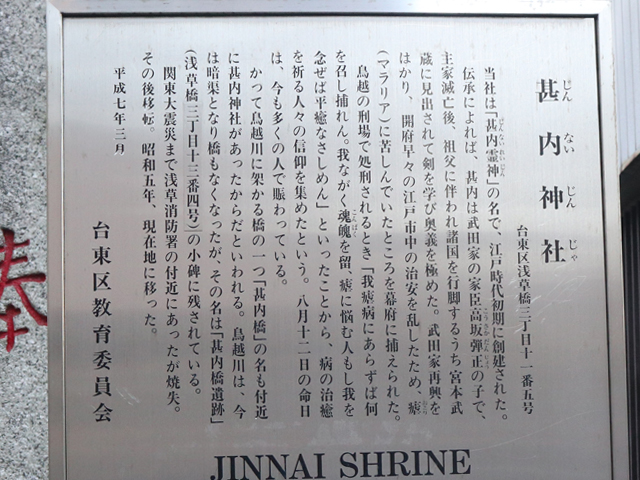 甚内神社
じん ない じん じゃ
台東区浅草橋三丁目十一番五号
当社は「甚内霊神」の名で、江戸時代初期に創建された。
伝承によれば、甚内は武田家の家臣高坂弾正の子で、
主家滅亡後、祖父に伴われ諸国を行脚するうち宮本武
蔵に見出されて剣を学び奥義を極めた。武田家再興を
はかり、開府早々の江戸市中の治安を乱したため、瘧
(マラリア)に苦しんでいたところを幕府に捕えられた。
鳥越の刑場で処刑されるとき「我瘧病にあらずば何
を召し捕れん。我ながく魂魄を留、瘧に悩む人もし我を
念ぜば平癒なさしめん」といったことから、病の治癒
を祈る人々の信仰を集めたという。八月十二日の命日
は、今も多くの人で賑わっている。
かつて鳥越川に架かる橋の一つ「甚内橋」の名も付近
に甚内神社があったからだといわれる。鳥越川は、今
は暗渠となり橋もなくなったが、その名は「甚内橋遺跡」
(浅草橋三丁目十三番四号)の小碑に残されている。
関東大震災まで浅草消防署の付近にあったが焼失。
その後移転。昭和五年、現在地に移った。
平成七年三月
台東区教育委員会
JINNAI SHRINE
奉